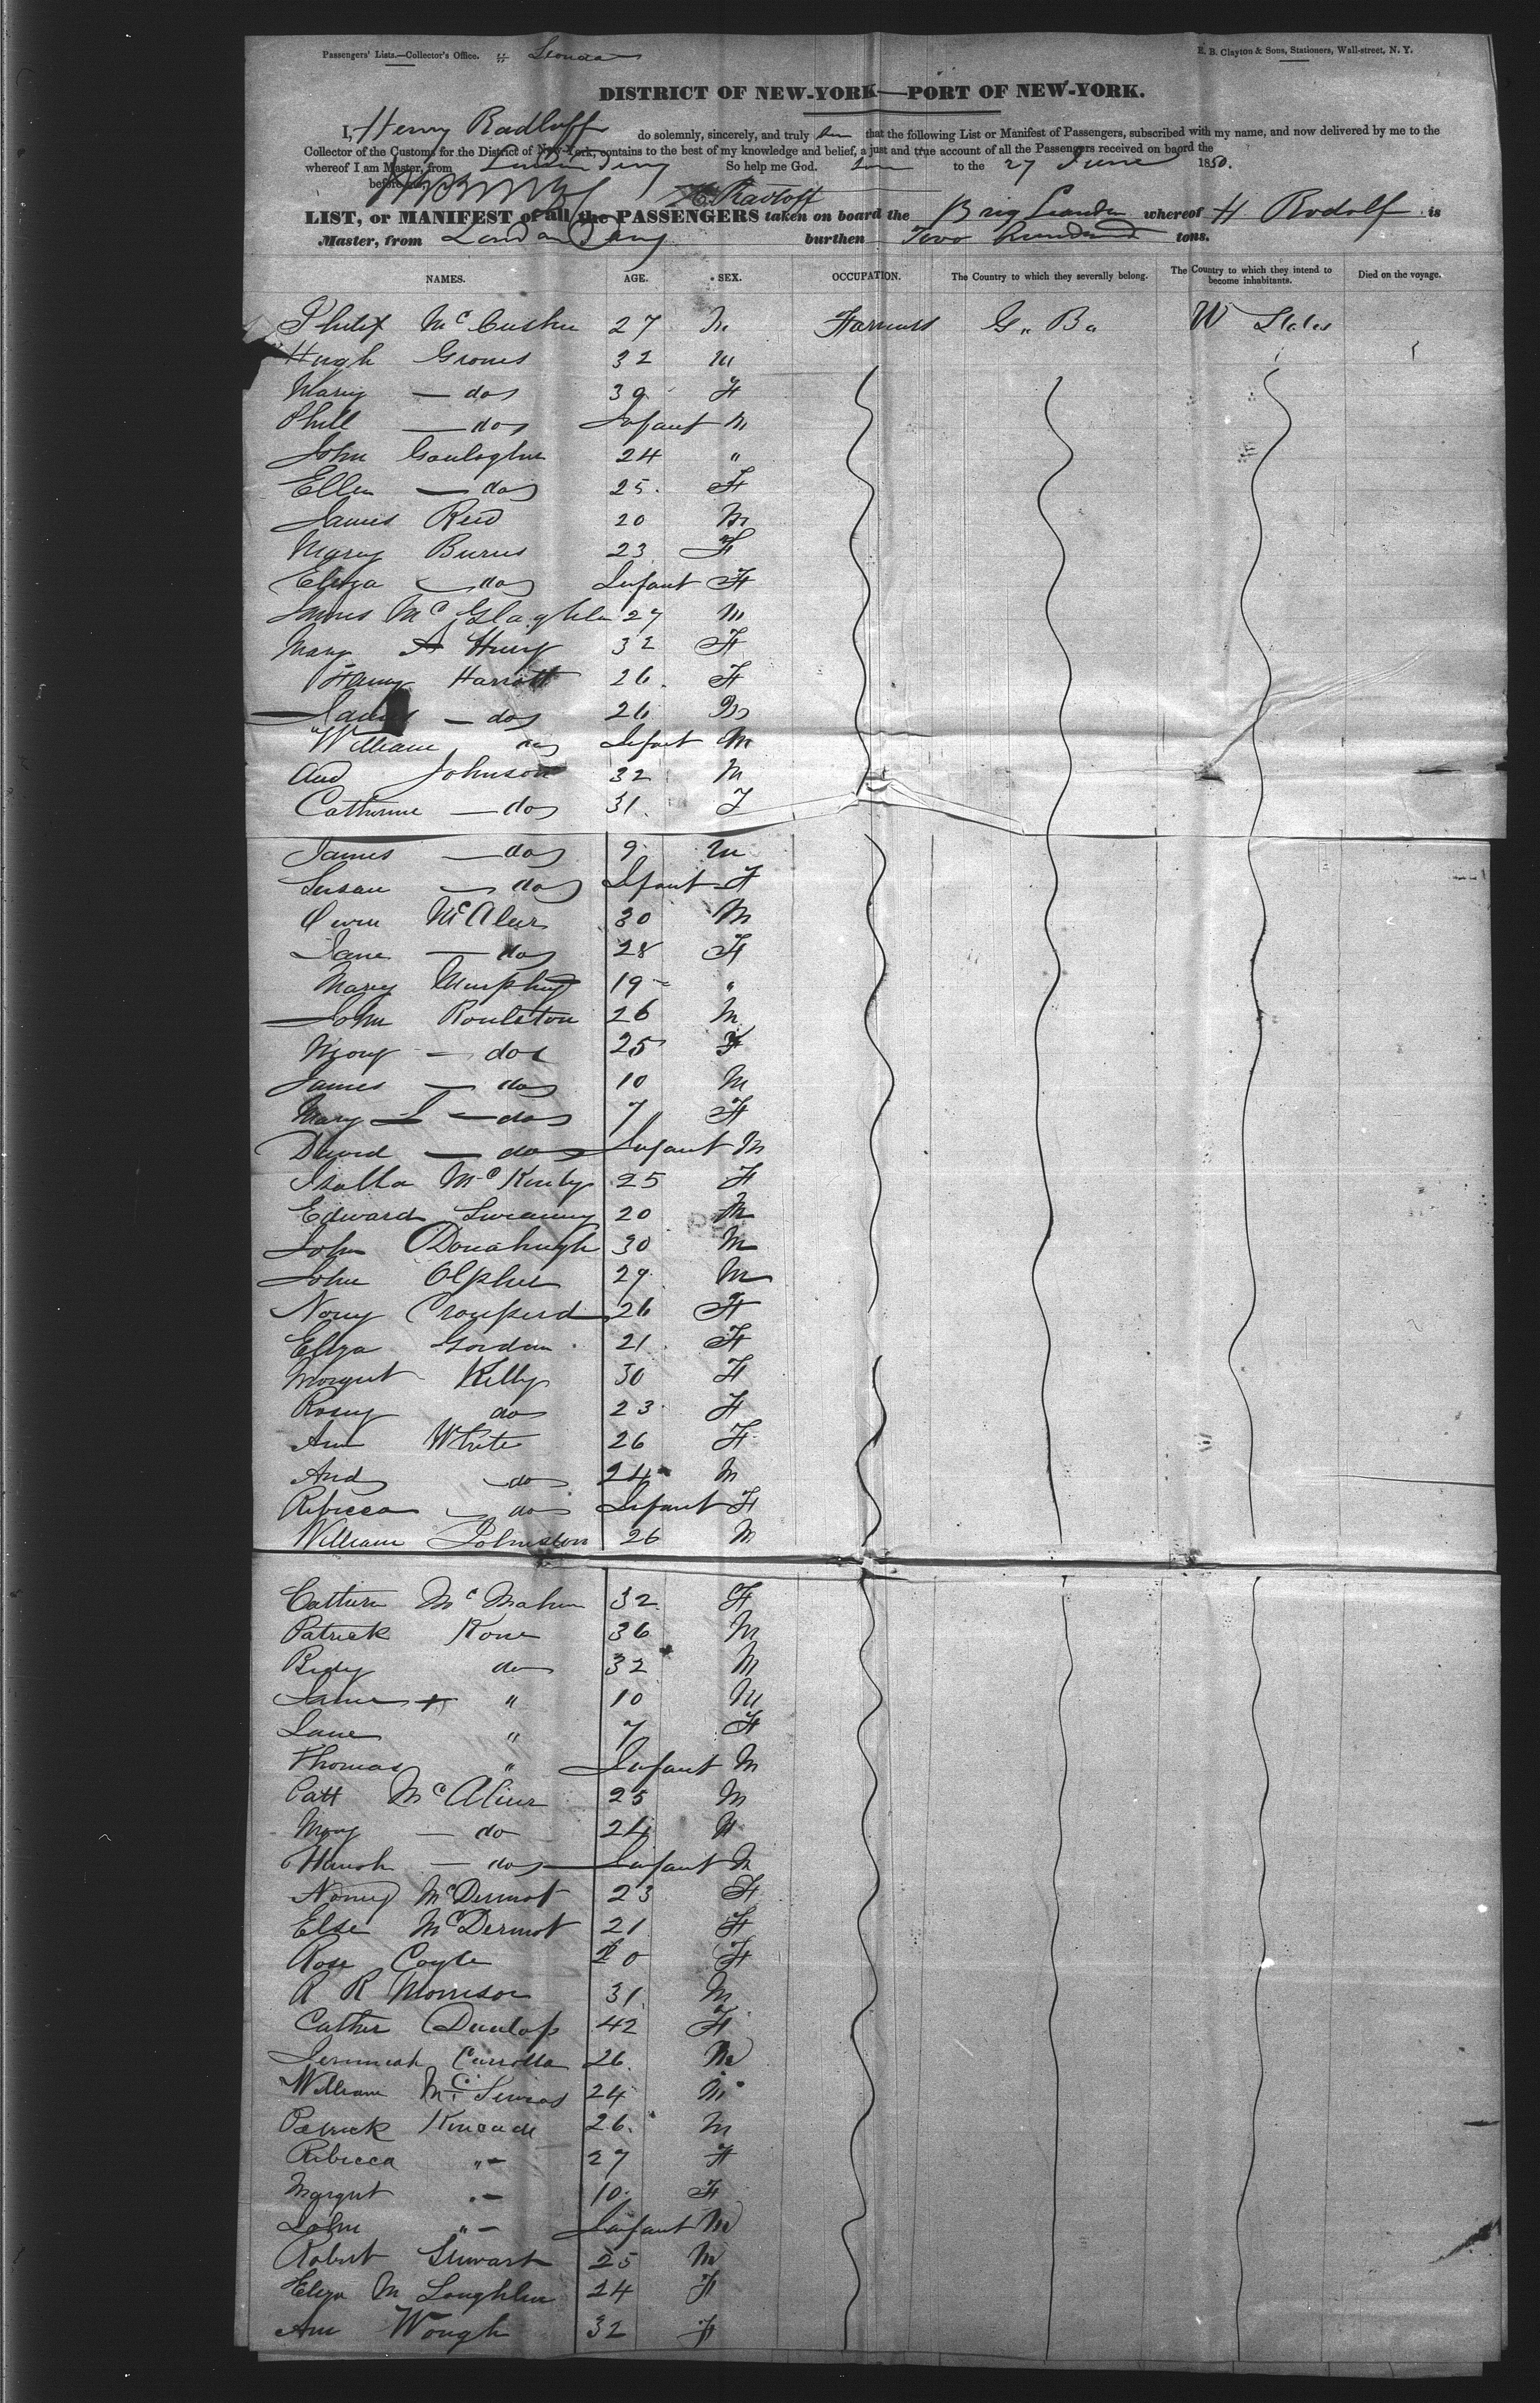 Passengers' Lists.—Collector's Office. E. B. Clayton & Sons, Stationers, Wall-street, N. Y.
DISTRICT OF NEW-YORK—PORT OF NEW-YORK.
I, Henry Radluff do solemnly, sincerely, and truly that the following List or Manifest of Passengers, subscribed with my name, and now delivered by me to the
Collector of the Customs for the District of New-York, contains to the best of my knowledge and belief, a just and true account of all the Passengers received on board the
whereof I am Master, from London Derry So help me God. to the 27 June 1850.
before me
H. Radloff
LIST, or MANIFEST of all the PASSENGERS taken on board the Brig Leander whereof H Rodolf is
Master, from London Derry burthen Two hundred tons.
NAMES. AGE. SEX. OCCUPATION. The Country to which they severally belong. The Country to which they intend to become inhabitants. Died on the voyage.
Philip McCusker 27 M Farmers G. B. U States
Hugh Groves 32 M
Mary — do 39 F
Phill — do Infant M
John Gaulogher 24 "
Ellen — do 25 F
James Reid 20 M
Mary Burns 23 F
Eliza — do Infant F
James McGlaghlen 27 M
Mary A 32 F
Fanny Harriott 26 F
James — do 26 M
William do Infant M
And Johnson 32 M
Catherine — do 31 F
James — do 9 M
Susan — do Infant F
Owen McAleer 30 M
Jane — do 28 F
Mary Murphy 19 "
John Roulston 26 M
Mary — do 25 F
James — do 10 M
Mary J — do 7 F
David — do Infant M
Isalla McKinly 25 F
Edward Sweanny 20 M
John ODonahugh 30 M
John Olpher 29 M
Nancy Crawferd 26 F
Eliza Gordon 21 F
Margret Kelly 30 F
Rosey do 23 F
Ann White 26 F
And do 24 M
Rebecca do Infant F
William Johnston 26 M
Cathern McMahen 32 F
Patrick Kone 36 M
Bidy do 32 M
James " 10 M
Jane " 7 F
Thomas " Infant M
Patt McAleer 25 M
Mary — do 24 F
Hanah — do Infant M
Nancy McDermot 23 F
Else McDermot 21 F
Rose Coyle 20 F
A R Morrison 31 M
Cather Dunlop 42 F
Jeremiah Carrolla 26 M
William Mc 24 M
Patrick Kincade 26 M
Rebecca " 27 F
Margret " 10 F
John " Infant M
Robert Stewart 25 M
Eliza M Loughlin 24 F
Ann Wough 32 F